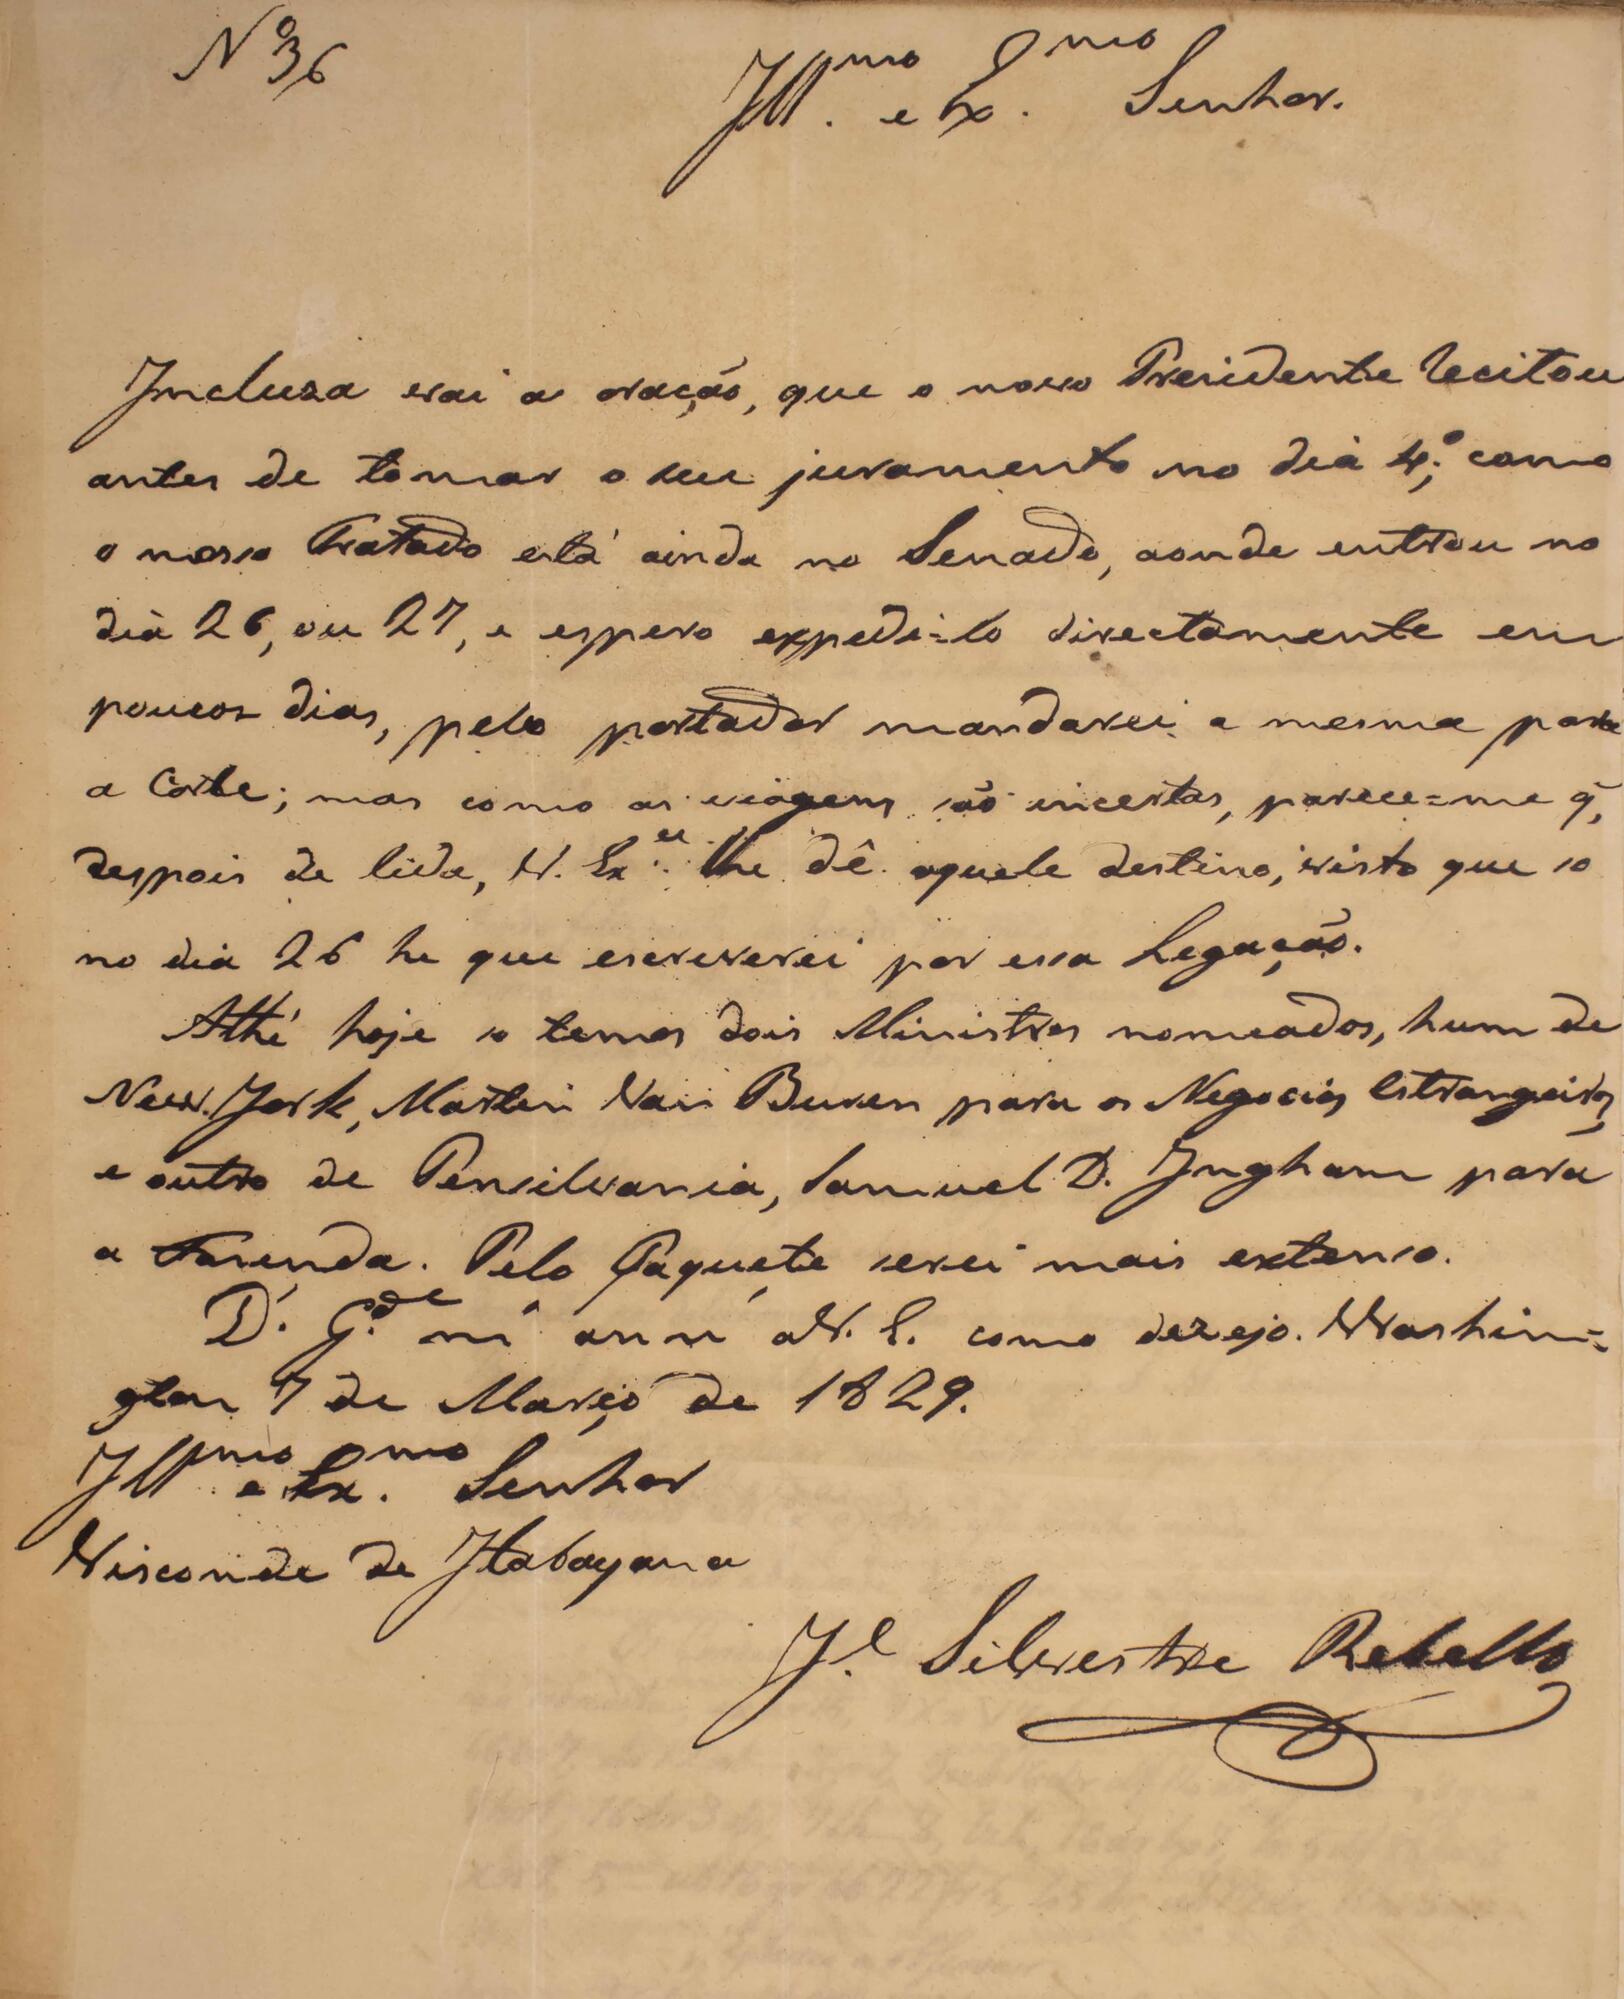 Nº 36
Ill.mo e Ex.mo Senhor.
Incluza vai a oração, que o novo Prezidente recitou
antes de tomar o seu juramento no dia 4º; como
o nosso Tratado está ainda no Senado, aonde entrou no
dia 26, ou 27, e espero expedi-lo directamente em
poucos dias, pelo portador mandarei a mesma para
a Corte; mas como as viagens são incertas, parece=me q̃,
despois de lida, V. Ex.cia lhe dê aquele destino, visto que so
no dia 26 he que escreverei por essa Legação.
Athé hoje so temos dois Ministros nomeados, hum de
New. York, Martin Van Buren para os Negocios Estrangeiros,
e outro de Pensilvania, Samuel D. Ingham para
a Fazenda. Pelo Paquete serei mais extenso.
D.s G.de m.s ann.s a V. E. como dezejo. Washin=
gton 7 de Março de 1829.
Ill.mo e Ex.mo Senhor
Visconde de Itabayana
J.e Silvestre Rebello